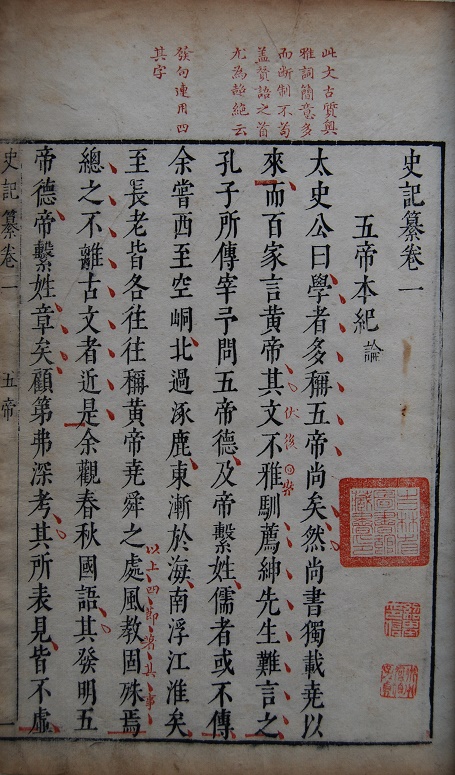 此文古質奧
雅詞簡意多
而斷制不苟
蓋贊語之首
尤為超絕云
發句連用四
其字
史記纂卷一
五帝本紀 論
太史公曰學者多稱五帝尚矣然尚書獨載堯以
來而百家言黃帝其文不雅馴薦紳先生難言之
伏後
孔子所傳宰予問五帝德及帝繫姓儒者或不傳
余嘗西至空峒北過涿鹿東漸於海南浮江淮矣
至長老皆各往往稱黃帝堯舜之處風教固殊焉
以上四節著其事
總之不離古文者近是余觀春秋國語其發明五
帝德帝繫姓章矣顧第弗深考其所表見皆不虛
史記纂卷一 五帝
吉林省
圖書館
藏書印